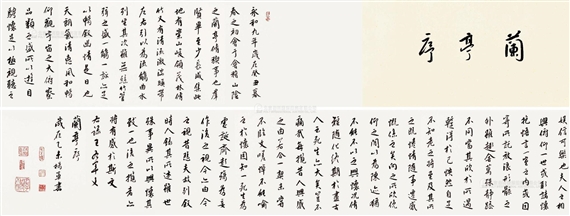 蘭亭序
永和九年歲在癸丑暮
春之初會于會稽山陰
之蘭亭脩稧事也羣
賢畢至少長咸集此
地有崇山峻領茂林脩
竹又有清流激湍映帶
左右引以為流觴曲水
列坐其次雖無絲竹管
弦之盛一觴一詠亦足
以暢敘幽情是日也
天朗氣清惠風和暢
仰觀宇宙之大俯察
品類之盛所以遊目
騁懷足以極視聽之
娛信可樂也夫人之相
與俯仰一世或取諸懷
抱悟言一室之內或因
寄所託放浪形骸之
外雖趣舍萬殊靜躁
不同當其欣於所遇
暫得於己快然自足
不知老之將至及其所
之既惓情隨事遷感
慨係之矣向之所欣俛
仰之間以為陳迹猶
不能不以之興懷況脩
短隨化終期於盡古
人云死生亦大矣豈不
痛哉每攬昔人興感
之由若合一契未嘗
不臨文嗟悼不能喻
之於懷固知一死生為
虛誕齊彭殤為妄
作後之視今亦由今
之視昔悲夫故列敘
時人錄其所述雖世
殊事異所以興懷其
致一也後之攬者亦
將有感於斯文
蘭亭序
歲在乙未